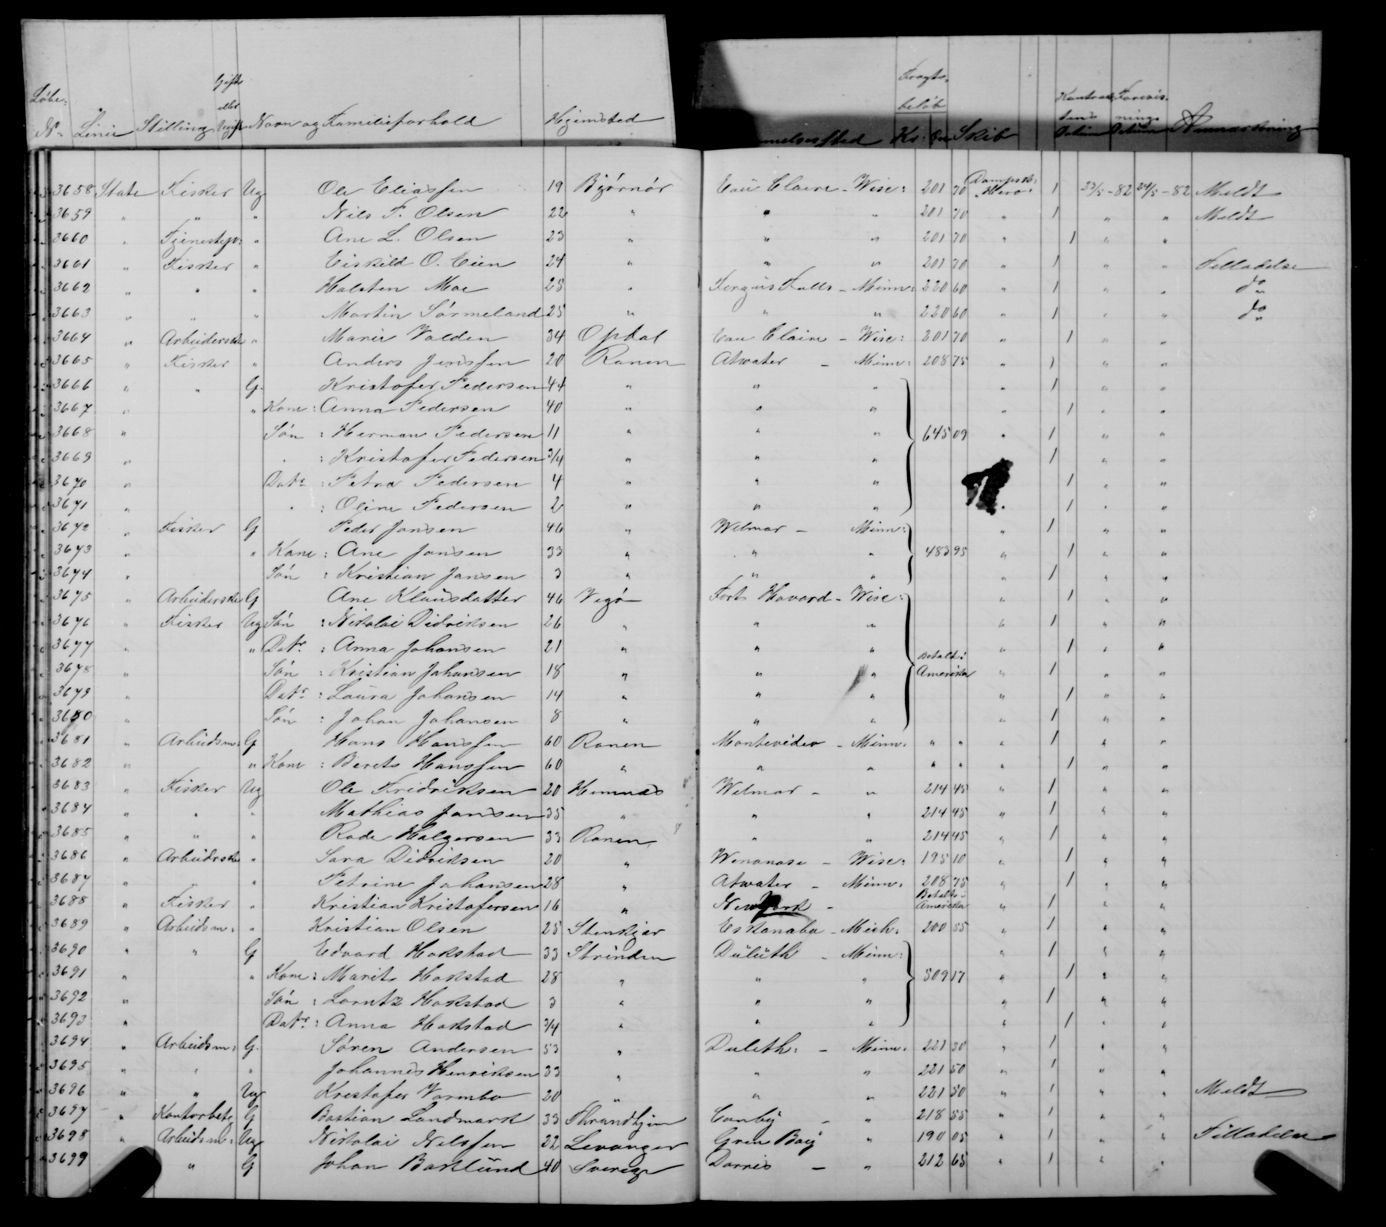 Løbe- Gift Fragt- Kontrac Forevis-
eller beløb tens nings
No Linie Stilling Ugift Navn og Familieforhold Hjemsted melsessted Kr: Øre Skib Datum Datum Anmærkning
3658 State Fisker Ug Ole Eliassen 19 Bjørnør Eau Claire - Wisc: 201 70 Dampsk: Hero 1 23/5 - 82 24/5 - 82 Meldt
3659 " " " Nils F. Olsen 22 " " " 201 70 " 1 " " Meldt
3660 " Tjenestep: " Ane L. Olsen 23 " " " 201 70 " 1 " "
3661 " Fisker " Eiskild O. Eien 24 " " " 201 70 " 1 " " Tilladelse
3662 " " " Halsten Moe 25 " Fergus Falls - Minn: 220 60 " 1 " " do
3663 " " " Martin Sørmeland 25 " " " 220 60 " 1 " " do
3664 " Arbeiderske " Marie Valden 34 Opdal Eau Claire - Wisc: 201 70 " 1 " "
3665 " Fisker " Anders Jenssen 20 Ranen Atwater - Minn: 208 75 " 1 " "
3666 " " G. Kristofer Pedersen 44 " " " " 1 " "
3667 " " Kone : Anna Pedersen 40 " " " 1 " "
3668 " Søn : Herman Pedersen 11 " " " 645 09 " 1 " "
3669 " " : Kristofer Pedersen 3/4 " " " 1 " "
3670 " Datr : Petra Pedersen 4 " " " 1 " "
3671 " " : Oline Pedersen 2 " " " " 1 " "
3672 " Fisker G Peder Jansen 46 " Wilmar - Minn: " 1 " "
3673 " " Kone : Ane Jansen 33 " " " 483 95 " 1 " "
3674 " Søn : Kristian Jansen 3 " " " " 1 " "
3675 " Arbeiderske G Ane Klausdatter 46 Vegø Fort Havard - Wisc: " 1 " "
3676 " Fisker Ug Søn : Nikolai Didriksen 26 " " " " 1 " "
3677 " " Datr : Anna Johansen 21 " " " " 1 " "
3678 " Søn : Kristian Johansen 18 " " " Betalt i Amerika " 1 " "
3679 " Datr : Laura Johansen 14 " " " " 1 " "
3680 " Søn : Johan Johansen 8 " " " " 1 " "
3681 " Arbeidsm: G Hans Hanssen 60 Ranen Montevideo - Minn: " " " 1 " "
3682 " " Kone : Berets Hanssen 60 " " " " " " 1 " "
3683 " Fisker Ug Ole Fridriksen 20 Hemnæs Wilmar - " 214 45 " 1 " "
3684 " " " Mathias Jansen 35 " " " 214 45 " 1 " "
3685 " " " Holgersen 33 Ranen " " 214 45 " 1 " "
3686 " Arbeiderske " Sara Didriksen 20 " - Wisc: 195 10 " 1 " "
3687 " " " Petrine Johansen 28 " Atwater - Minn: 208 75 " 1 " "
3688 " Fisker " Kristian Kristofersen 16 " Newyork - Betalt i Amerika " 1 " "
3689 " Arbeidsm: " Kristian Olsen 25 Stenkjær Eskanaba - Mich: 200 55 " 1 " "
3690 " " G Edvard Hokstad 33 Strinden Duluth - Minn: " 1 " "
3691 " " Kone : Marit Hokstad 28 " " " 509 17 " 1 " "
3692 " Søn : Lorntz Hokstad 3 " " " " 1 " "
3693 " Datr : Anna Hokstad 3/4 " " " 1 " "
3694 " Arbeidsm: G. Søren Andersen 53 " Duluth: - Minn: 221 50 " 1 " "
3695 " " " Johannes Henriksen 33 " " " 221 50 " 1 " "
3696 " " Ug Kristofer Varmbo 20 " " " 221 50 " 1 " " Meldt
3697 " Kontorbetj G Bastian Landmark 33 Thrandhjem Canby - " 218 55 " 1 " "
3698 " Arbeidsm: Ug Nikolai Nilssen 22 Levanger Green Bay " 190 05 " 1 " " Tilladelse
3699 " G Johan Backlund 40 Sverige - " 212 65 " 1 " "